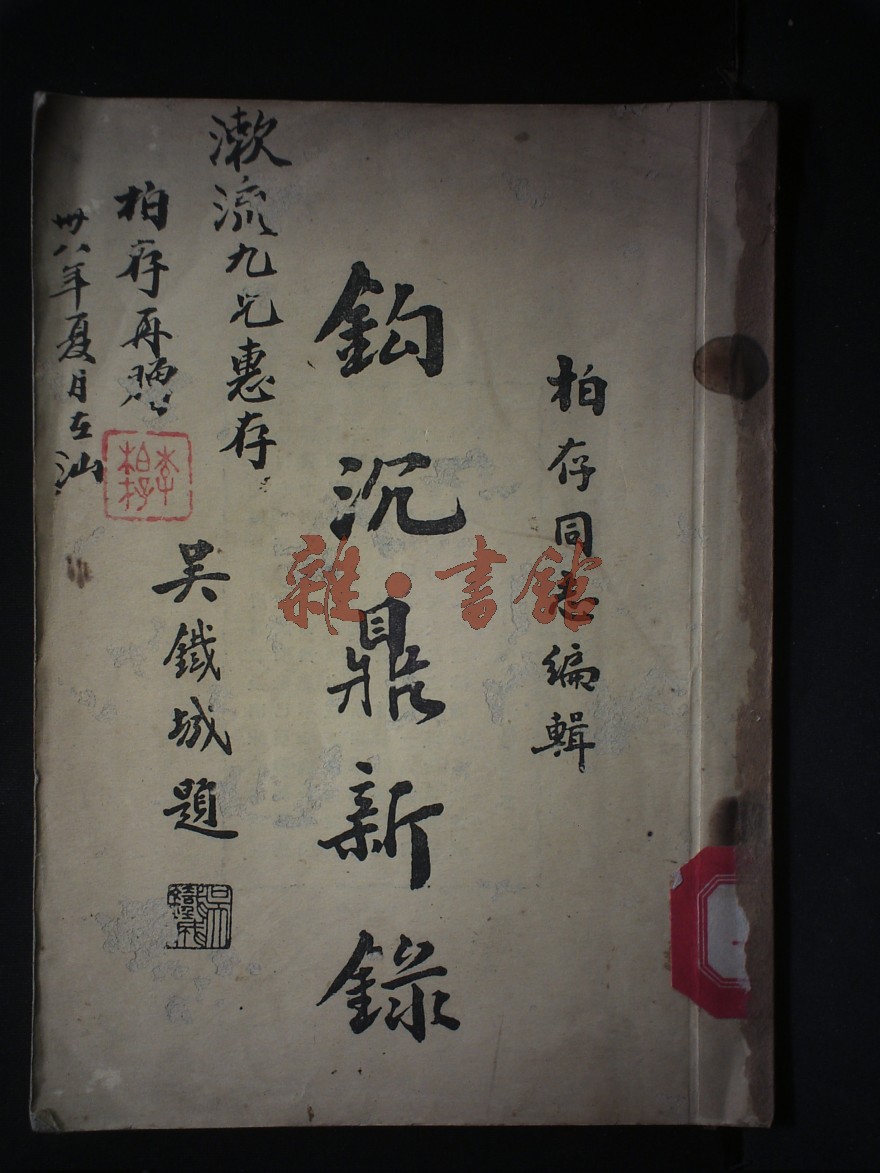 柏存同志編輯
鈎沉鼎新錄
吴鐵城題
漱流九兄惠存
柏存再贈
卅八年夏月在汕
李柏存
雜·書館